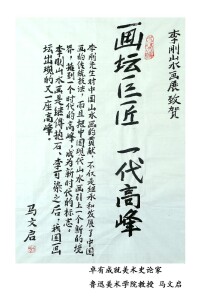 李刚山水画展致贺
画坛巨匠 一代高峰
李刚先生对中国山水画的贡献，不仅是继承和发展了中国
画的传统技法，而且把中国现代山水画引上一个新的境
界，推到一个时代的高峰，成为新时代的标志。
李刚山水画是继傅抱石、李可染之后，我国画
坛出现的又一座高峰。
马文启
卓有成就美术史论家
鲁迅美术学院教授 马文启